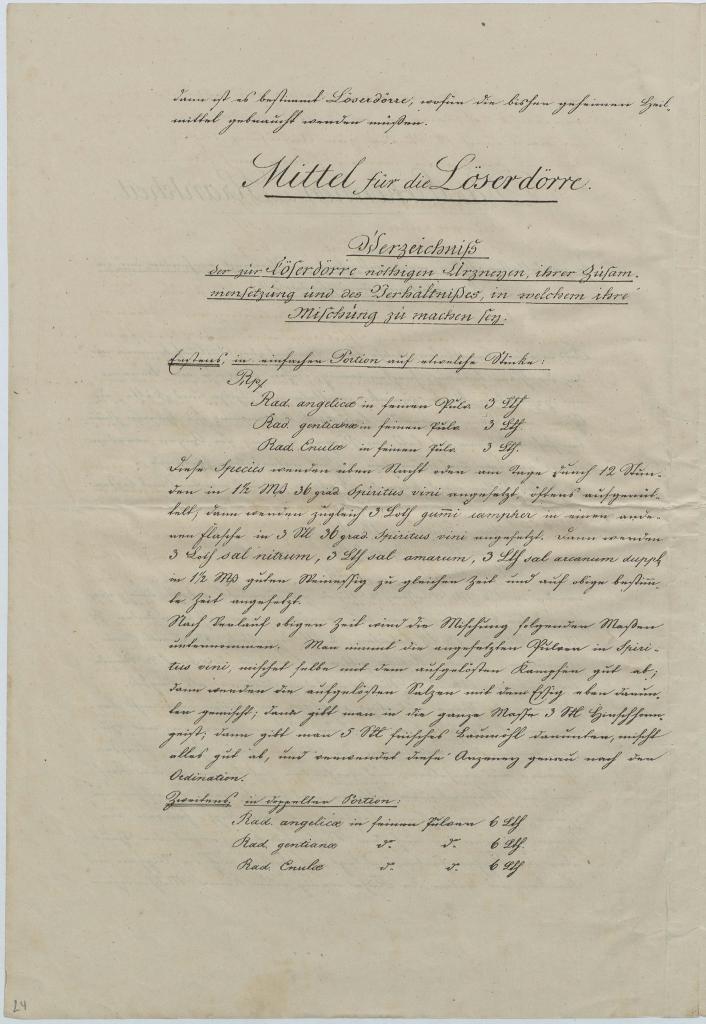 dann ist es bestimmt Löserdörre, wofür die bisher geheimen Heil-
mittel gebraucht werden müßen.
Mittel für die Löserdörre.
Verzeichniß
der zur Löserdörre nöthigen Arzneyen, ihrer Zusam-
mensetzung und des Verhältnißes, in welchem ihre
Mischung zu machen sey.
Erstens, in einfacher Portion auf etwelche Stücke:
Rp/
Rad. angelicæ in feinen Pulv. 3 Lth
Rad. gentianæ in feinen Pulv. 3 Lth
Rad. Enulæ in feinen Pulv. 3 Lth.
Diese Species werden über Nacht oder am Tage durch 12 Stun-
den in 1½ Mß 36 grad Spiritus vini angesetzt, öfters aufgerüt-
telt; dann werden zugleich 3 Loth gum̄i campher in einer ande-
ren Flasche in 3 Stl 36 grad. Spiritus vini angesetzt. Dann werden
3 Loth sal nitrum, 3 Lth sal amarum, 3 Lth sal arcanum duppl
in 1½ Mß guten Weinessig zu gleicher Zeit und auf obige bestim̄-
te Zeit angesetzt.
Nach Verlauf obigen Zeit wird die Mischung folgender Maßen
unternommen. Man nimmt die angesetzten Pulver in Spiri-
tus vini, mischet selbe mit dem aufgelösten Kampfer gut ab;
dann werden die aufgelösten Salzen mit dem Essig eben darun-
ter gemischt; dann gibt man in die ganze Masse 3 Stl Hirschhorn-
geist; dann gibt man 5 Stl frisches Baumöhl darunter, mischt
alles gut ab, und verwendet diese Arzeney genau nach der
Ordination.
Zweitens, in doppelter Portion:
Rad. angelicæ in feinen Pulver 6 Lth
Rad. gentianæ d°. d°. 6 Lth.
Rad. Enulæ d°. d°. 6 Lth
24